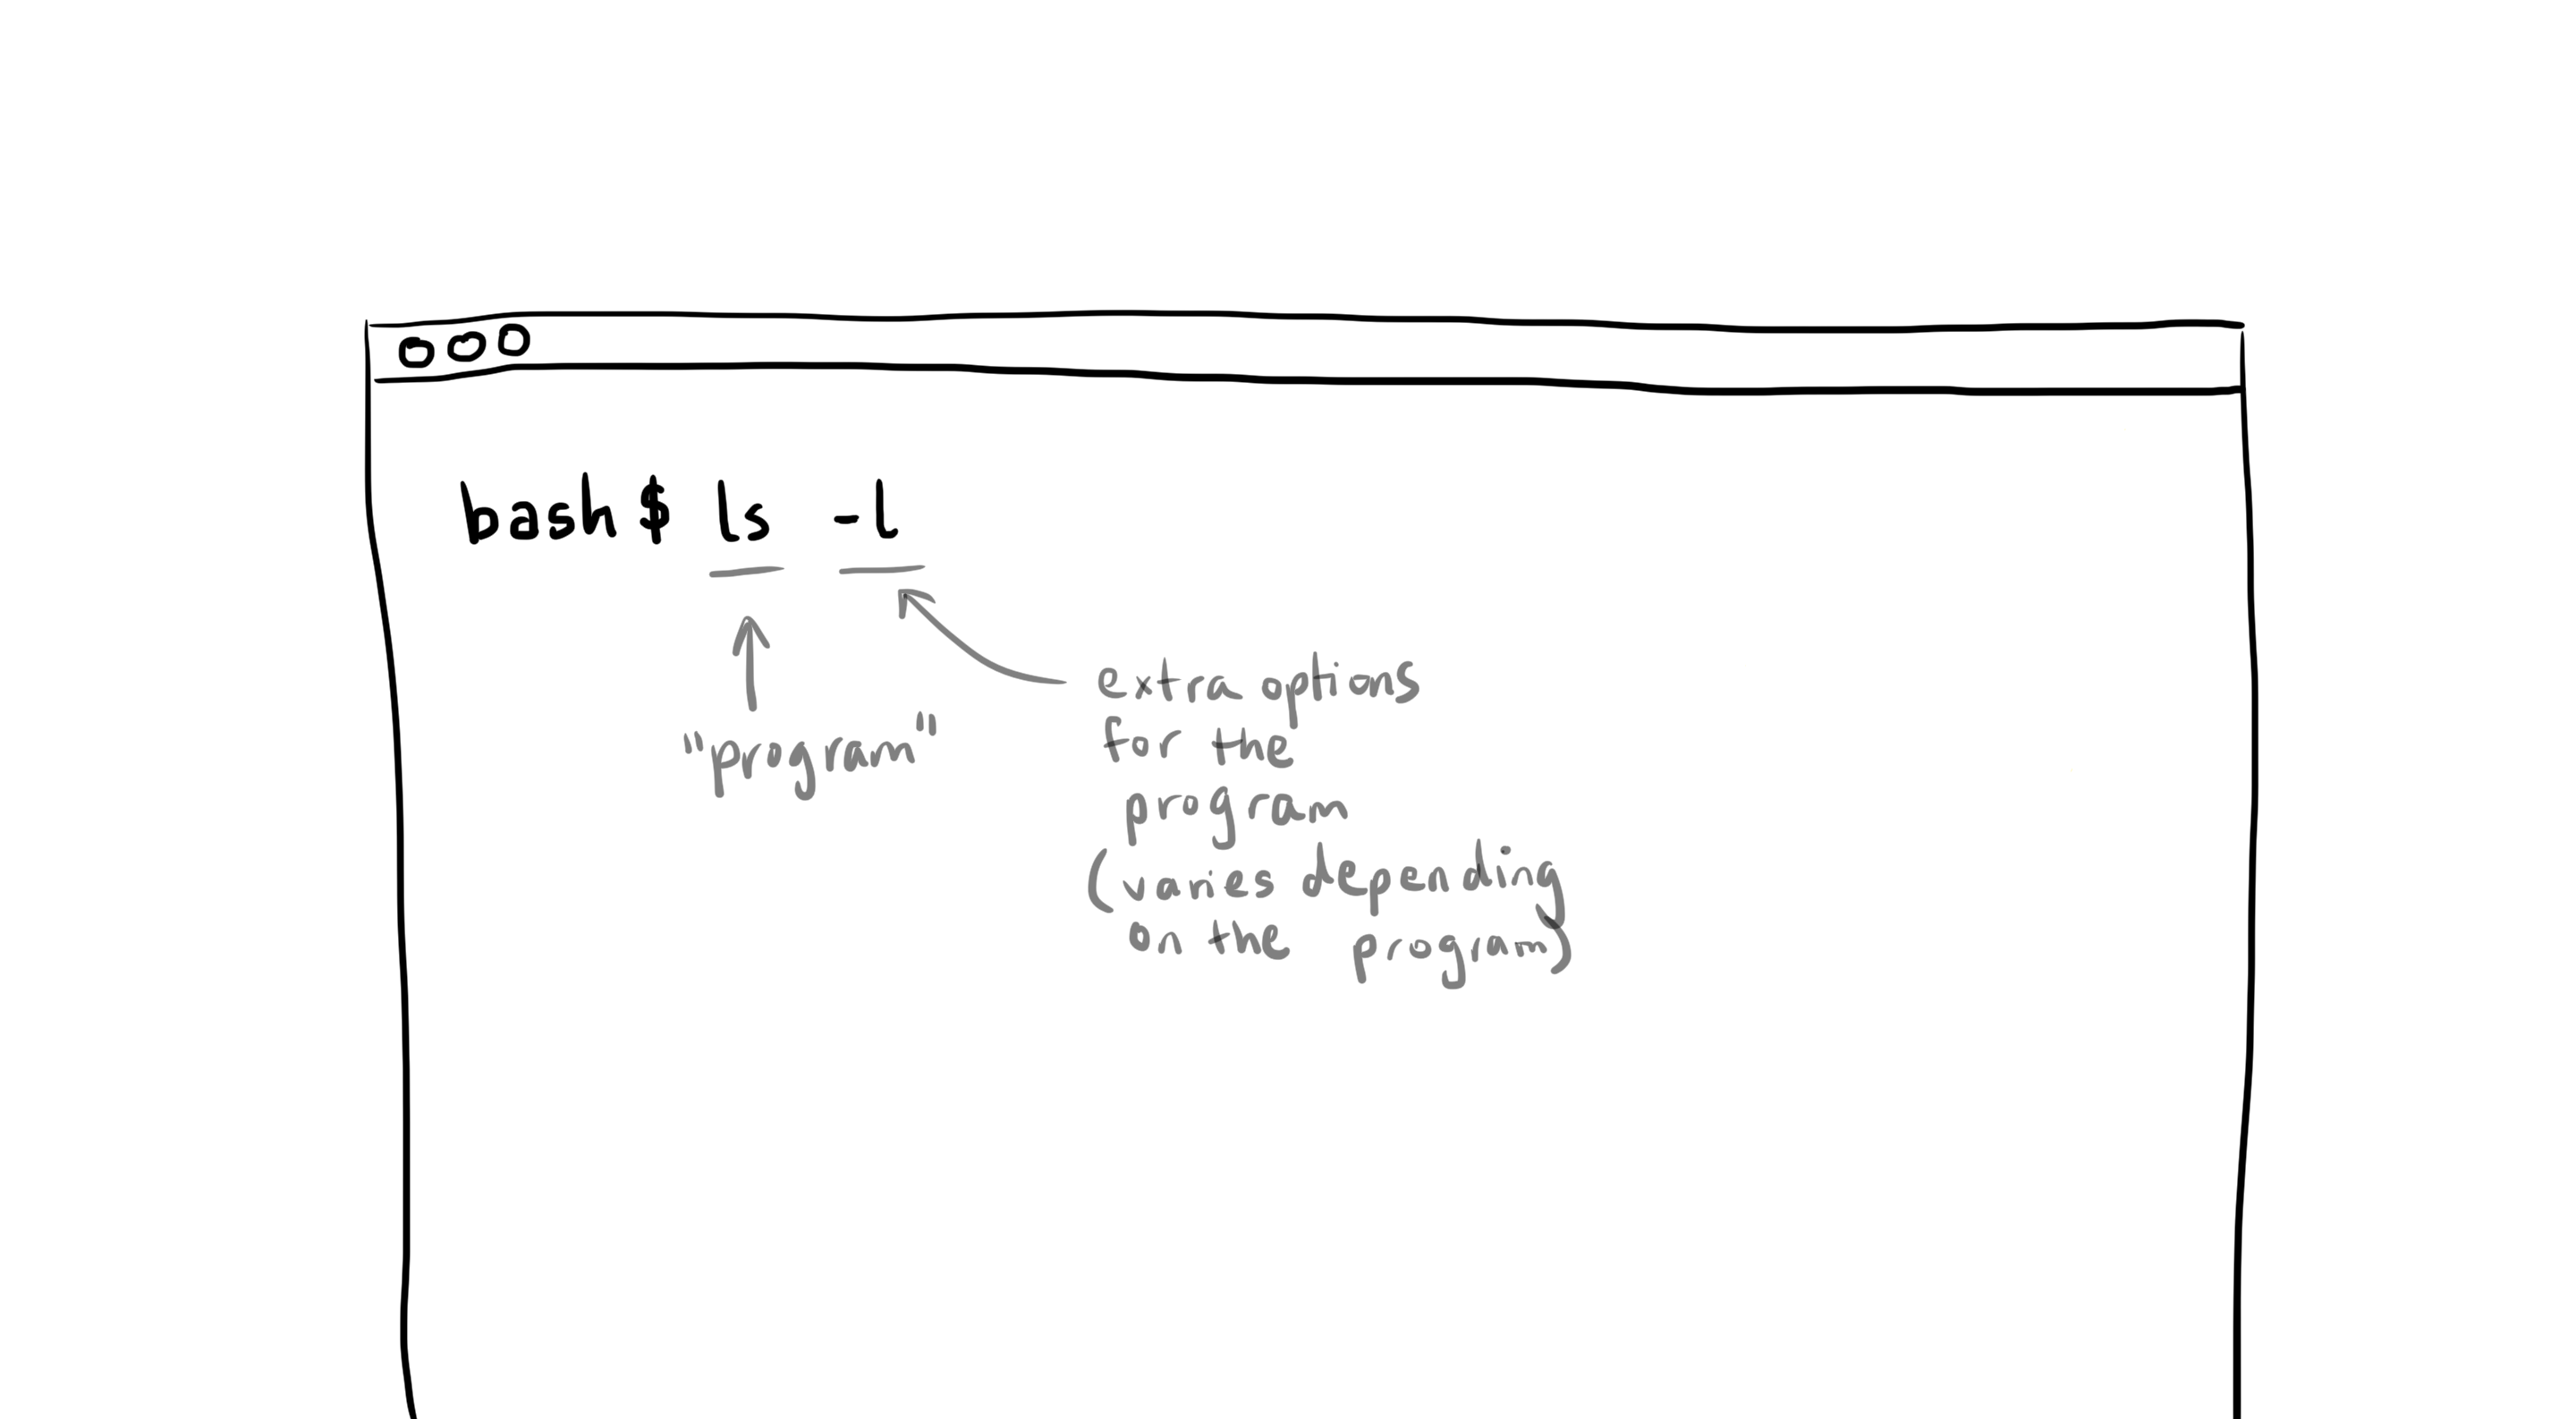 bash $ ls -l
"program"
extra options
for the
program
(varies depending
on the program)